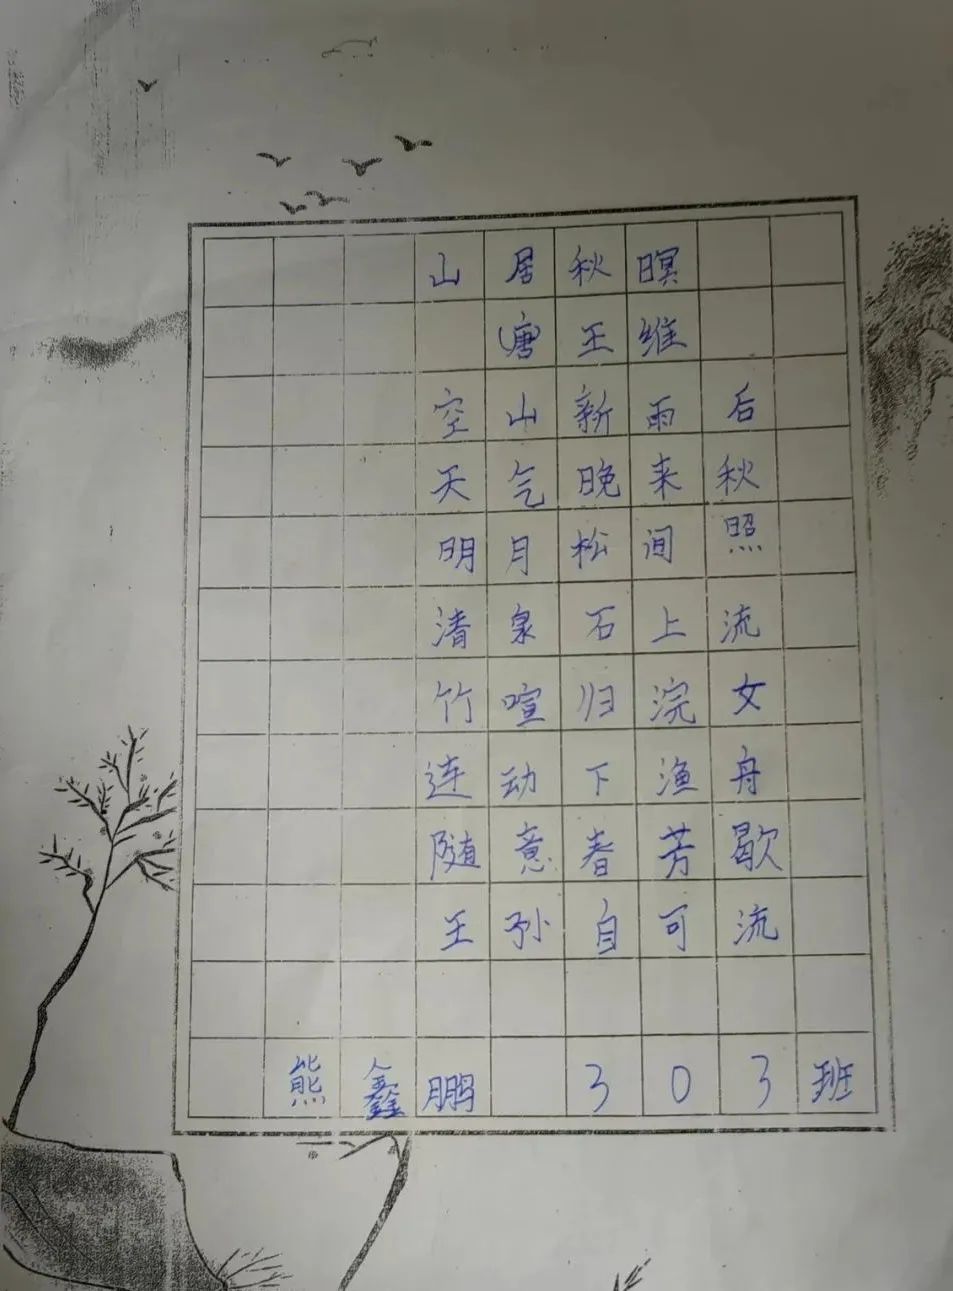 山居秋暝
唐王维
空山新雨后
天气晚来秋
明月松间照
清泉石上流
竹喧归浣女
连动下渔舟
随意春芳歇
王孙自可流
熊鑫鹏 303班